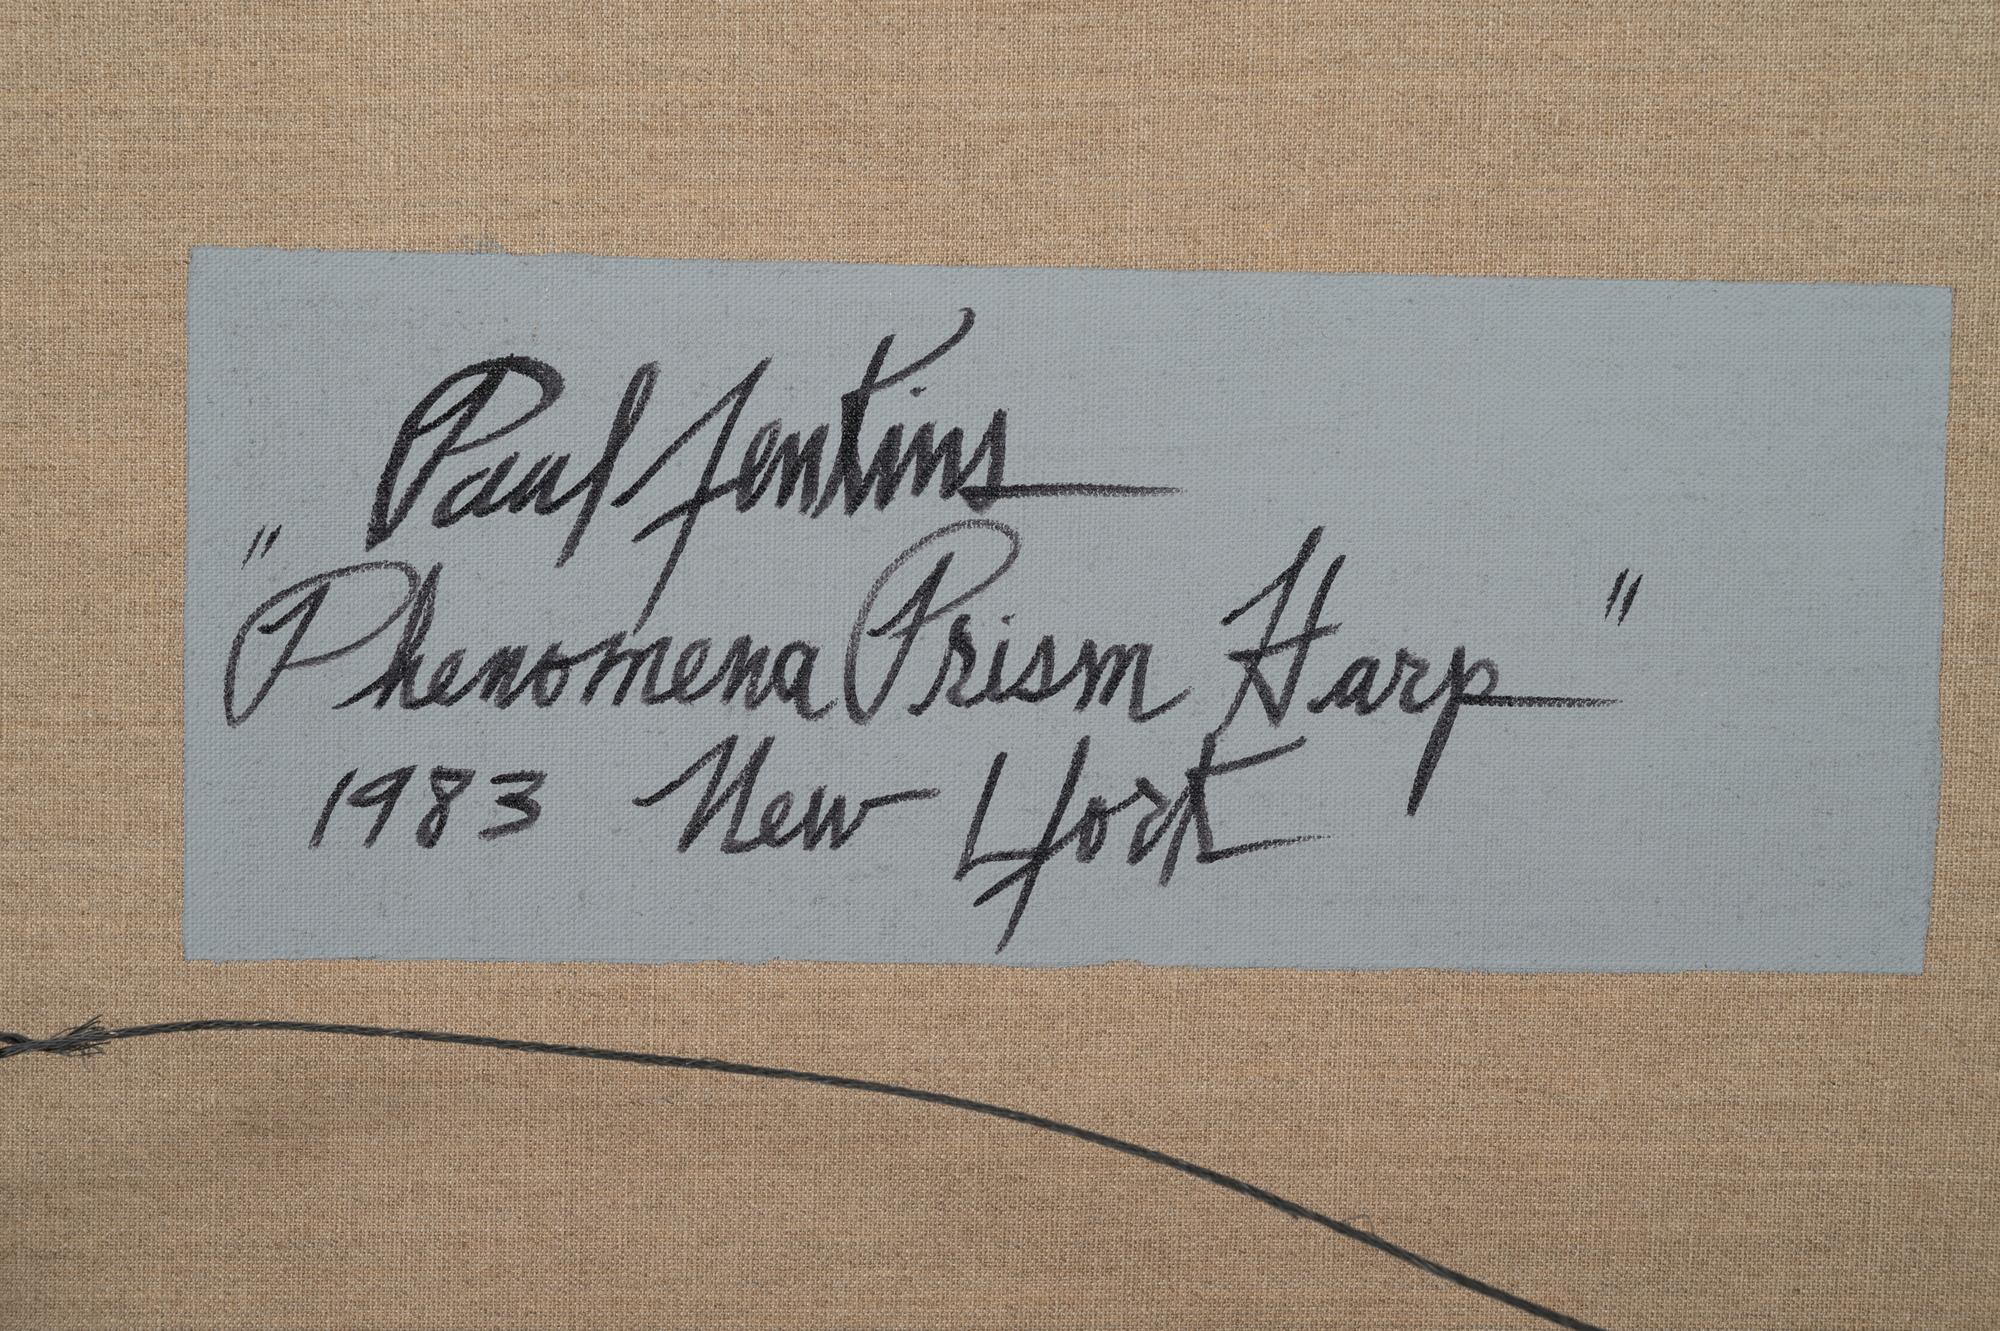 Paul Jenkins
"Phenomena Prism Harp"
1983 New York